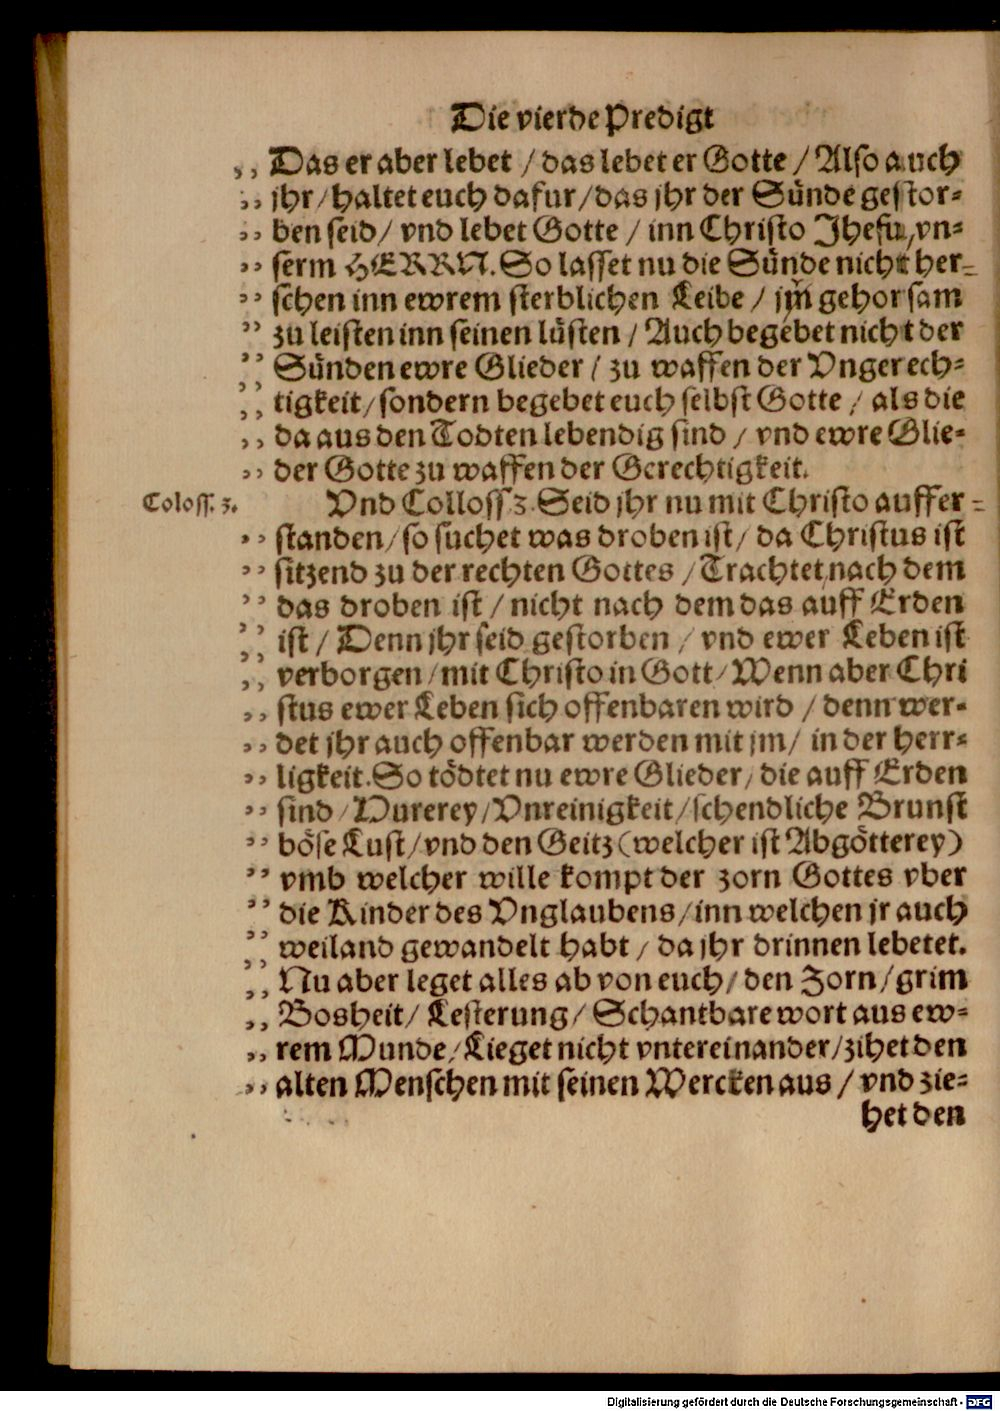 Die vierde Predigt
„ Das er aber lebet / das lebet er Gotte / Also auch
„ jhr / haltet euch dafur / das jhr der Sünde gestor-
„ ben seid / vnd lebet Gotte / inn Christo Jhesu, vn-
„ serm HERRN. So lasset nu die Sünde nicht her-
„ schen inn ewrem sterblichen Leibe / jm gehorsam
„ zu leisten inn seinen lüsten / Auch begebet nicht der
„ Sünden ewre Glieder / zu waffen der Vngerech-
„ tigkeit / sondern begebet euch selbst Gotte / als die
„ da aus den Todten lebendig sind / vnd ewre Glie-
„ der Gotte zu waffen der Gerechtigkeit.
Coloss. 3. Vnd Colloss 3. Seid jhr nu mit Christo auffer-
„ standen / so suchet was droben ist / da Christus ist
„ sitzend zu der rechten Gottes / Trachtet nach dem
„ das droben ist / nicht nach dem das auff Erden
„ ist / Denn jhr seid gestorben / vnd ewer Leben ist
„ verborgen / mit Christo in Gott / Wenn aber Chri
„ stus ewer Leben sich offenbaren wird / denn wer-
„ det jhr auch offenbar werden mit jm / in der herr-
„ ligkeit. So tödtet nu ewre Glieder / die auff Erden
„ sind / Hurerey / Vnreinigkeit / schendliche Brunst
„ böse Lust / vnd den Geitz (welcher ist Abgötterey)
„ vmb welcher wille kompt der zorn Gottes vber
„ die Kinder des Vnglaubens / inn welchen jr auch
„ weiland gewandelt habt / da jhr drinnen lebetet.
„ Nu aber leget alles ab von euch / den Zorn / grim
„ Bosheit / Lesterung / Schantbare wort aus ew-
„ rem Munde / Lieget nicht vntereinander / zihet den
„ alten Menschen mit seinen Wercken aus / vnd zie-
het den
Digitalisierung gefördert durch die Deutsche Forschungsgemeinschaft - DFG